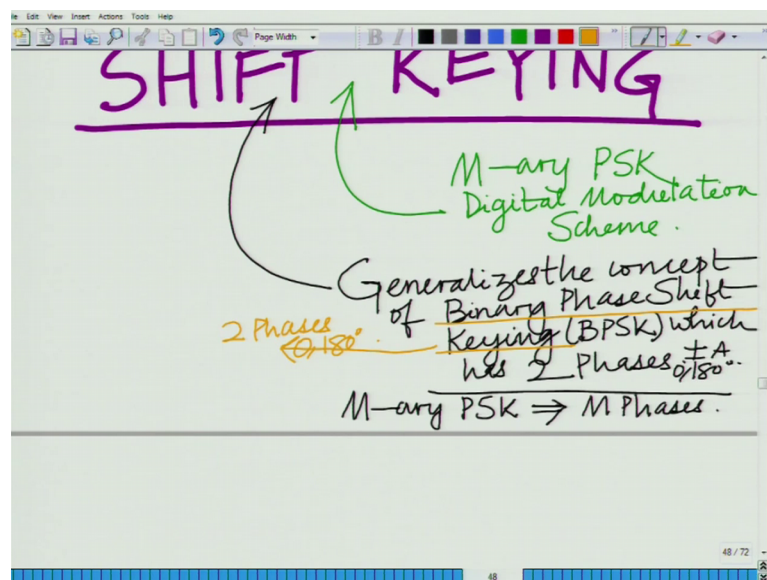 Edit View Insert Actions Tools Help
Page Width
SHIFT KEYING
M-ary PSK
Digital Modulation
Scheme.
Generalizes the concept
of Binary Phase Shift
2 Phases
0,180°.
Keying (BPSK) which
has 2 Phases ±A
0,180°.
M-ary PSK ⇒ M Phases.
48 / 72
48